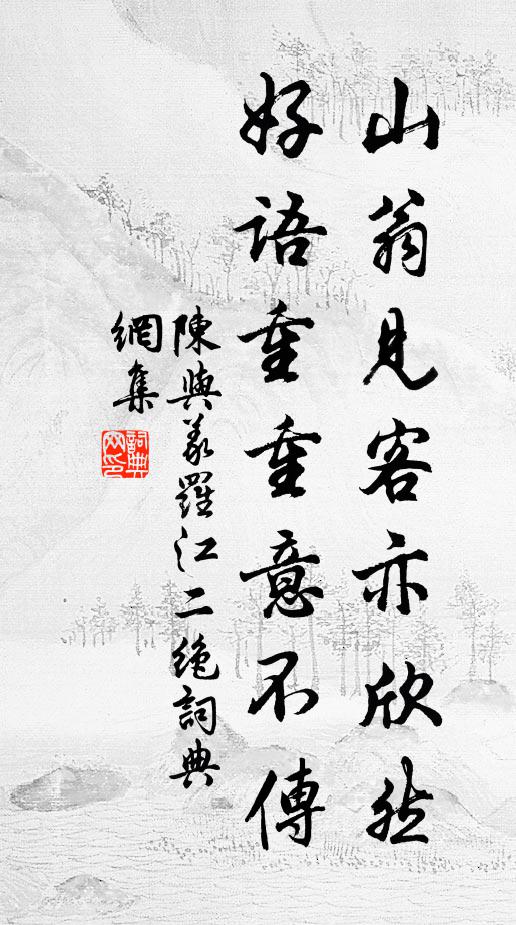 山翁見客亦欣然
好語重重意不傳
陳與義羅江二絕詞典
網集
詞典
网印